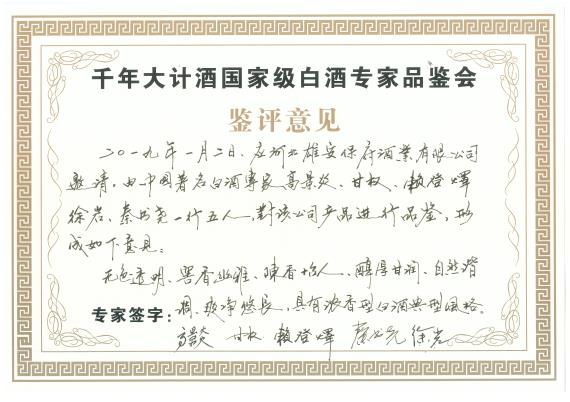 千年大计酒国家级白酒专家品鉴会
鉴评意见
二〇一九年一月二日，应河北雄安保府酒業有限公司
邀请，由中國著名白酒專家高景炎、甘权、賴登燡
徐岩、秦书尧一行五人，對該公司产品进行品鉴，形
成如下意見：
无色透明、窖香幽雅、陳香怡人、醇厚甘润、自然谐
调、爽净悠長，具有浓香型白酒典型風格。
专家签字：
甘权 賴登燡 徐岩